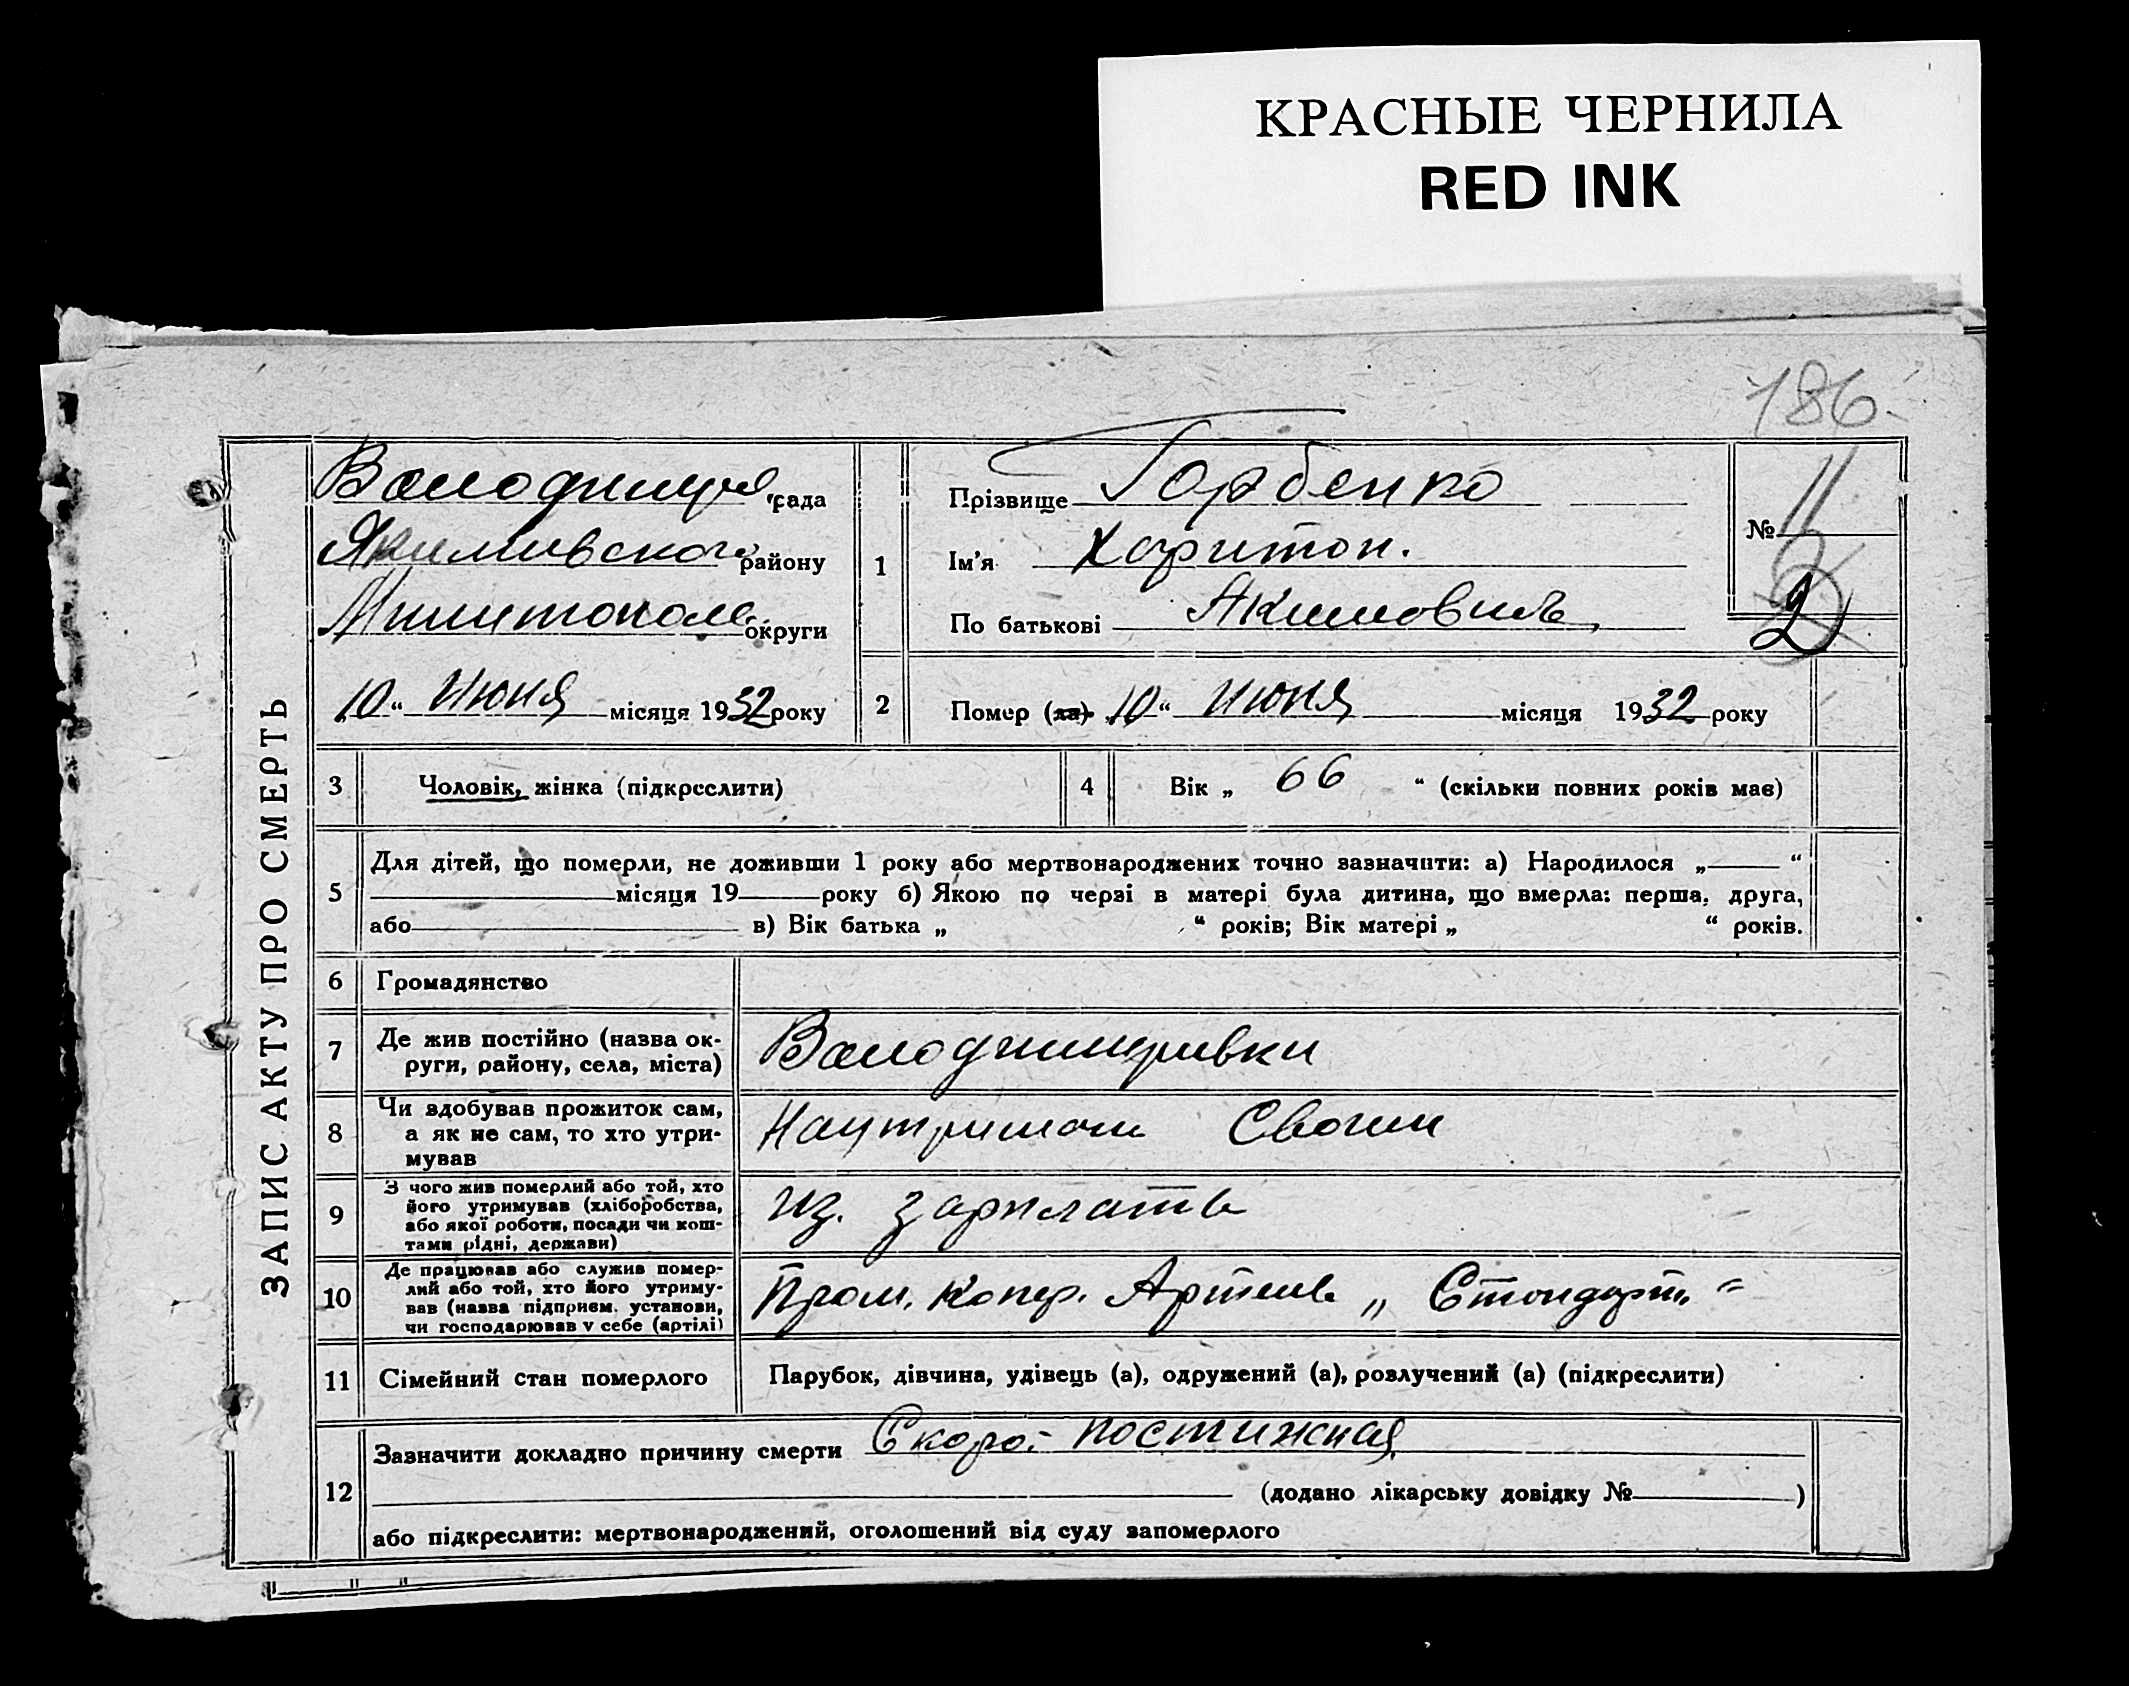 КРАСНЫЕ ЧЕРНИЛА
RED INK
186
ЗАПИС АКТУ ПРО СМЕРТЬ
рада
Якимивского району
округи
10 “ Июня місяця 1932 року
1
Прізвище Горбенко
Ім’я Харитон.
По батькові Акимович
№ 11
2
2 Помер (ла) 10 “ Июня місяця 1932 року
3 Чоловік, жінка (підкреслити)
4 Вік „ 66 “ (скільки повних років має)
5 Для дітей, що померли, не доживши 1 року або мертвонароджених точно зазначити: а) Народилося „ “
місяця 19 року б) Якою по черзі в матері була дитина, що вмерла: перша, друга,
або в) Вік батька „ “ років; Вік матері „ “ років.
6 Громадянство
7 Де жив постійно (назва ок-
руги, району, села, міста)
Володимировки
8 Чи здобував прожиток сам,
а як не сам, то хто утри-
мував
9 З чого жив померлий або той, хто
його утримував (хліборобства,
або якої роботи, посади чи кош-
тами рідні, держави)
из. зарплать
10 Де працював або служив помер-
лий або той, хто його утриму-
вав (назва підприєм. установи,
чи господарював у себе (артілі)
Пром. Копер. Артель „ Стондарт “
11 Сімейний стан померлого
Парубок, дівчина, удівець (а), одружений (а), розлучений (а) (підкреслити)
12 Зазначити докладно причину смерти Скоро-постижная
(додано лікарську довідку № )
або підкреслити: мертвонароджений, оголошений від суду запомерлого